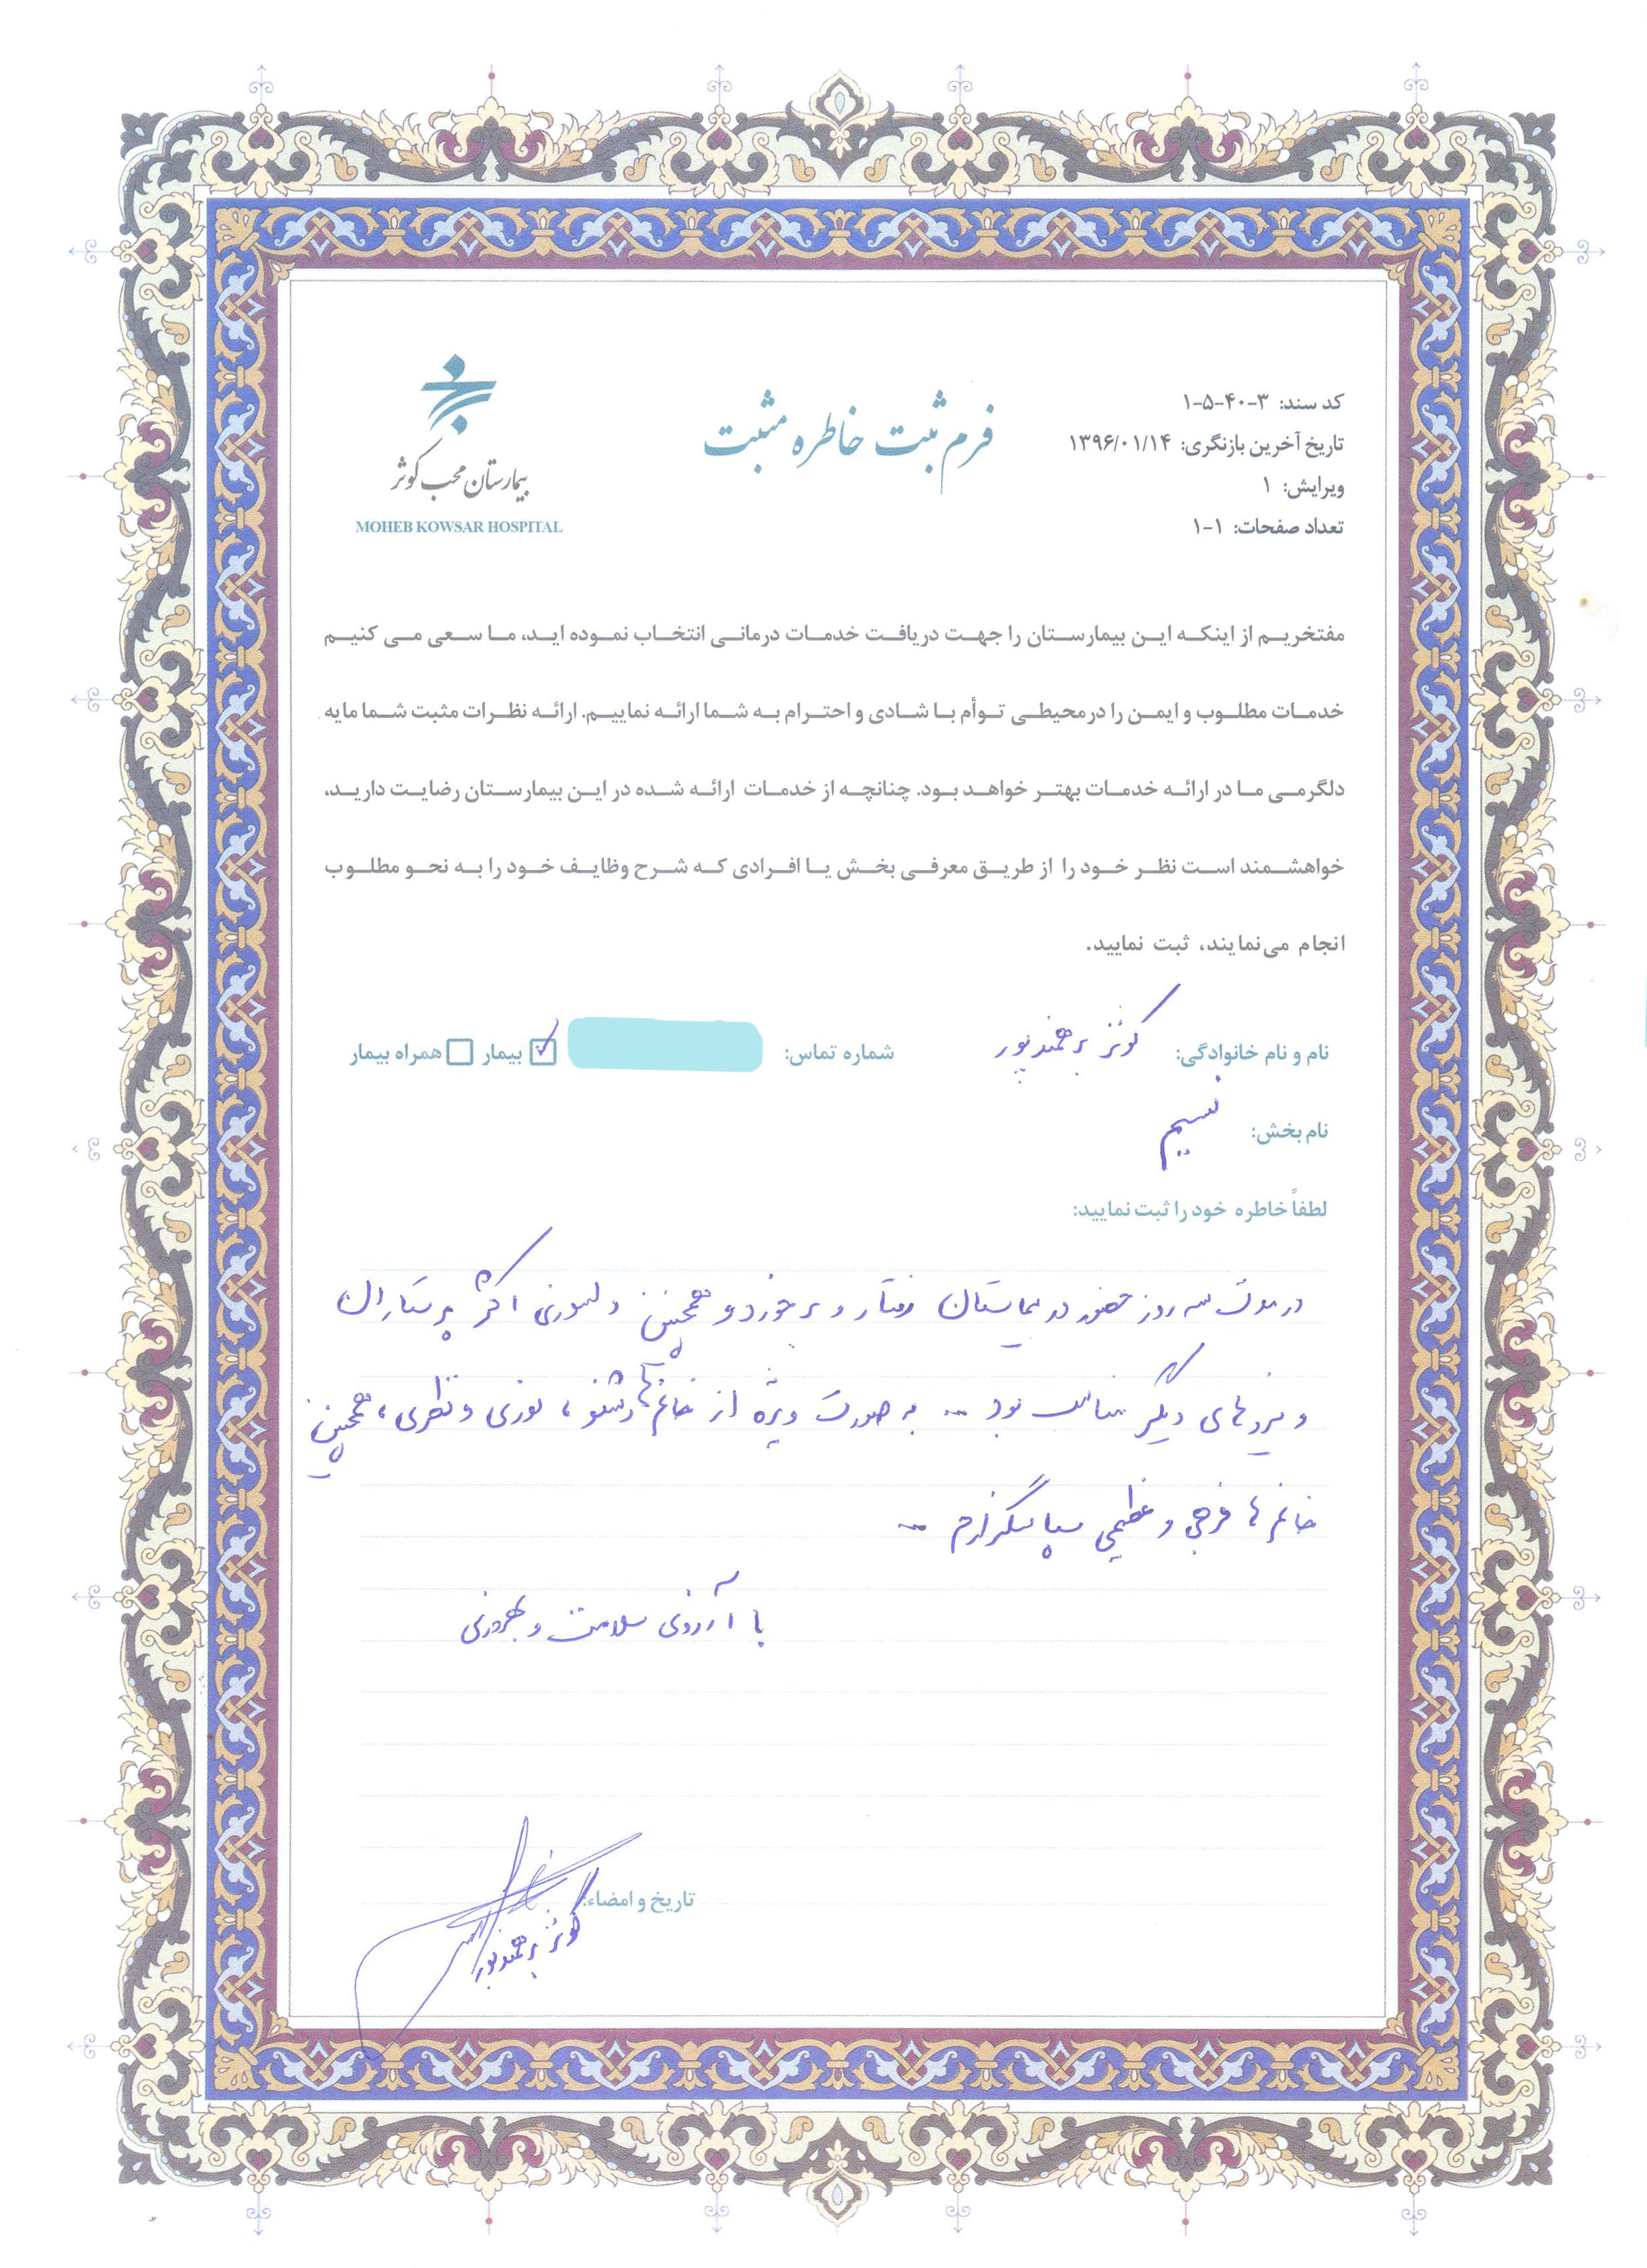 کد سند: ۳-۴۰-۵-۱
تاریخ آخرین بازنگری: ۱۳۹۶/۰۱/۱۴
ویرایش: ۱
تعداد صفحات: ۱-۱
فرم ثبت خاطره مثبت
بیمارستان محب کوثر
MOHEB KOWSAR HOSPITAL
مفتخریم از اینکه این بیمارستان را جهت دریافت خدمات درمانی انتخاب نموده اید، ما سعی می کنیم
خدمات مطلوب و ایمن را در محیطی توأم با شادی و احترام به شما ارائه نماییم. ارائه نظرات مثبت شما مایه
دلگرمی ما در ارائه خدمات بهتر خواهد بود. چنانچه از خدمات ارائه شده در این بیمارستان رضایت دارید،
خواهشمند است نظر خود را از طریق معرفی بخش یا افرادی که شرح وظایف خود را به نحو مطلوب
انجام می‌نمایند، ثبت نمایید.
نام و نام خانوادگی: کوثر برهمندپور شماره تماس: بیمار همراه بیمار
نام بخش: نسیم
لطفاً خاطره خود را ثبت نمایید:
در مدت سه روز حضور در بیمارستان رفتار و برخورد و همچنین دلسوزی اکثر پرستاران
و نیروهای دیگر مناسب بود ... به صورت ویژه از خانم‌ها ، نوری و نظری ، همچنین
خانم ها فرجی و عظیمی سپاسگزارم ...
با آرزوی سلامت و بهروزی
تاریخ و امضاء:
کوثر برهمندپور